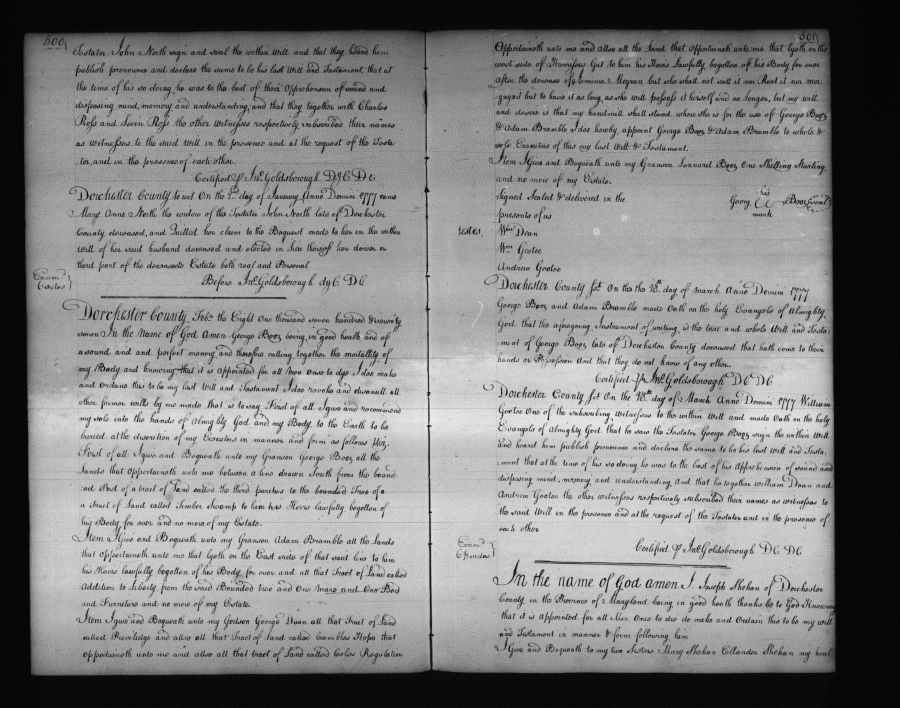 500
Testator John North sign and seal the within will and that they heard him
publish pronounce and declare the same to be his last Will and Testament, that at
the time of his so doing he was to the best of their Apprehension of sound and
disposing mind, memory and understanding, and that they together with Charles
Ross and Levin Ross the other Witnesses respectively subscribed their names
as witnesses to the said will in the presence and at the request of the Testa
tor, and in the presence of each other.
Certified P Jno. Goldsborough DyC DC
Dorchester County to wit On the day of January Anno Domini 1777 came
Mary Anne North the widow of the Testator John North late of Dorchester
County deceased, and Quitted her claim to the Bequest made to her in the within
will of her said husband deceased and elected in Lieu thereof her dower or
third part of the deceaseds Estate both real and Personal
Before Jno. Goldsborough dyC DC
Examd
Dorchester County Febr. the Eight One thousand seven hundred & seventy
seven In the Name of God Amen George Booz being in good health and of
a sound and and perfect memory and therefore calling together the mortallity of
my Body and knowing that it is Appointed for all Men once to dye I doe make
and ordane this to be my last Will and Testament I doe revoke and disanull all
other former wills by me made that is to say First of all I give and recommend
my sole into the hands of Almighty God and my Body to the Earth to be
buried at the discretion of my Executors in manner and form as follows Viz.
First of all I give and Bequeath unto my Granson George Booz all the
Lands that Appertaineth unto me between a line drawn South from the bound
ed Post of a tract of Land called the third purchess to the bounded Tree of a
a Tract of Land called Timber Swamp to him his Heirs lawfully begotten of
his Body for ever and no more of my Estate.
Item I Give and Bequeath unto my Granson Adam Bramble all the Lands
that appertaineth unto me that lyeth on the East side of that said line to him
his Heirs lawfully begotten of his Body for ever and all that Tract of Land called
Addition to Liberty from the said Bounded tree and One mare and One Bed
and Furniture and no more of my Estate.
Item I give and Bequeath unto my Godson George Dean all that Tract of Land
called Priviledge and allso all that Tract of Land called Brambles Hope that
appertaineth unto me and allso all that tract of Land called Coles Regulation
501
Appertaineth unto me and allso all the Land that appertaineth unto me that lyeth on the
west side of Gut to him his Heirs Lawfully begotten of his Body for ever
After the decease of but who shall not sell it nor Rent it nor mor
gage it but to have it as long as she will possess it herself and no longer, but my will
and desire is that my handmill shall stand where she is for the use of George Booz
& Adam Bramble I doe hereby appoint George Booz & Adam Bramble to whole &
sole Executors of this my last will & Testament.
Item I Give and Bequeath unto my Granson Leonard Booz One Shilling Starling
and no more of my Estate.
Signed Sealed & delivered in the
his
Georg. Booz (Seal)
mark
presents of us
testes.
Wm. Dean
Wm. Gootee
Andrew Gootee
Dorchester County Sst. On the 10th day of March Anno Domini 1777
George Booz and Adam Bramble made Oath on the holy Evangels of Almighty
God that the aforegoing Instrument of writing is the true and whole Will and Testa
ment of George Booz late of Dorchester County deceased that hath come to their
hands or Possession And that they do not know of any other.
Certified P Jno. Goldsborough DC DC
Dorchester County Sst. On the 10th day of March Anno Domini 1777 William
Gootee One of the subscribing Witnesses to the within Will and made Oath on the holy
Evangels of Almighty God that he saw the Testator George Booz sign the within Will
and heard him publish pronounce and declare the same to be his last will and Testa
ment that at the time of his so doing he was to the best of his Apprehension of sound and
disposing mind, memory and understanding And that he together William Dean and
Andrew Gootee the other witnesses respectively subscribed their names as witnesses to
the said Will in the presence and at the request of the Testator and in the presence of
each other
Certified P Jno. Goldsborough DC DC
Examd
In the name of God amen I Joseph Shehan of Dorchester
County in the Province of Maryland being in good health thanks be to God Knowing
that it is appointed for all Men Once to die do make and Ordain this to be my will
and Testament in manner & form following him
I Give and Bequeath to my two Sisters Mary Shehan Ellander Shehan my real